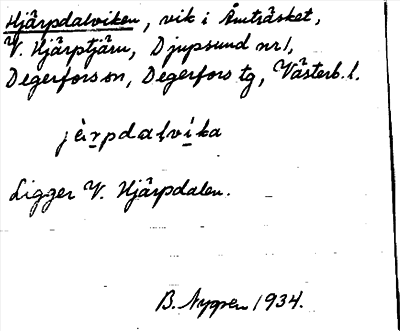 Hjärpdalviken, vik i Åmträsket,
V. Hjärptjärn, Djupsund nr 1,
Degerfors sn, Degerfors tg, Västerb. l.
jèrpdalvíka
Ligger V. Hjärpdalen.
B. Nygren 1934.